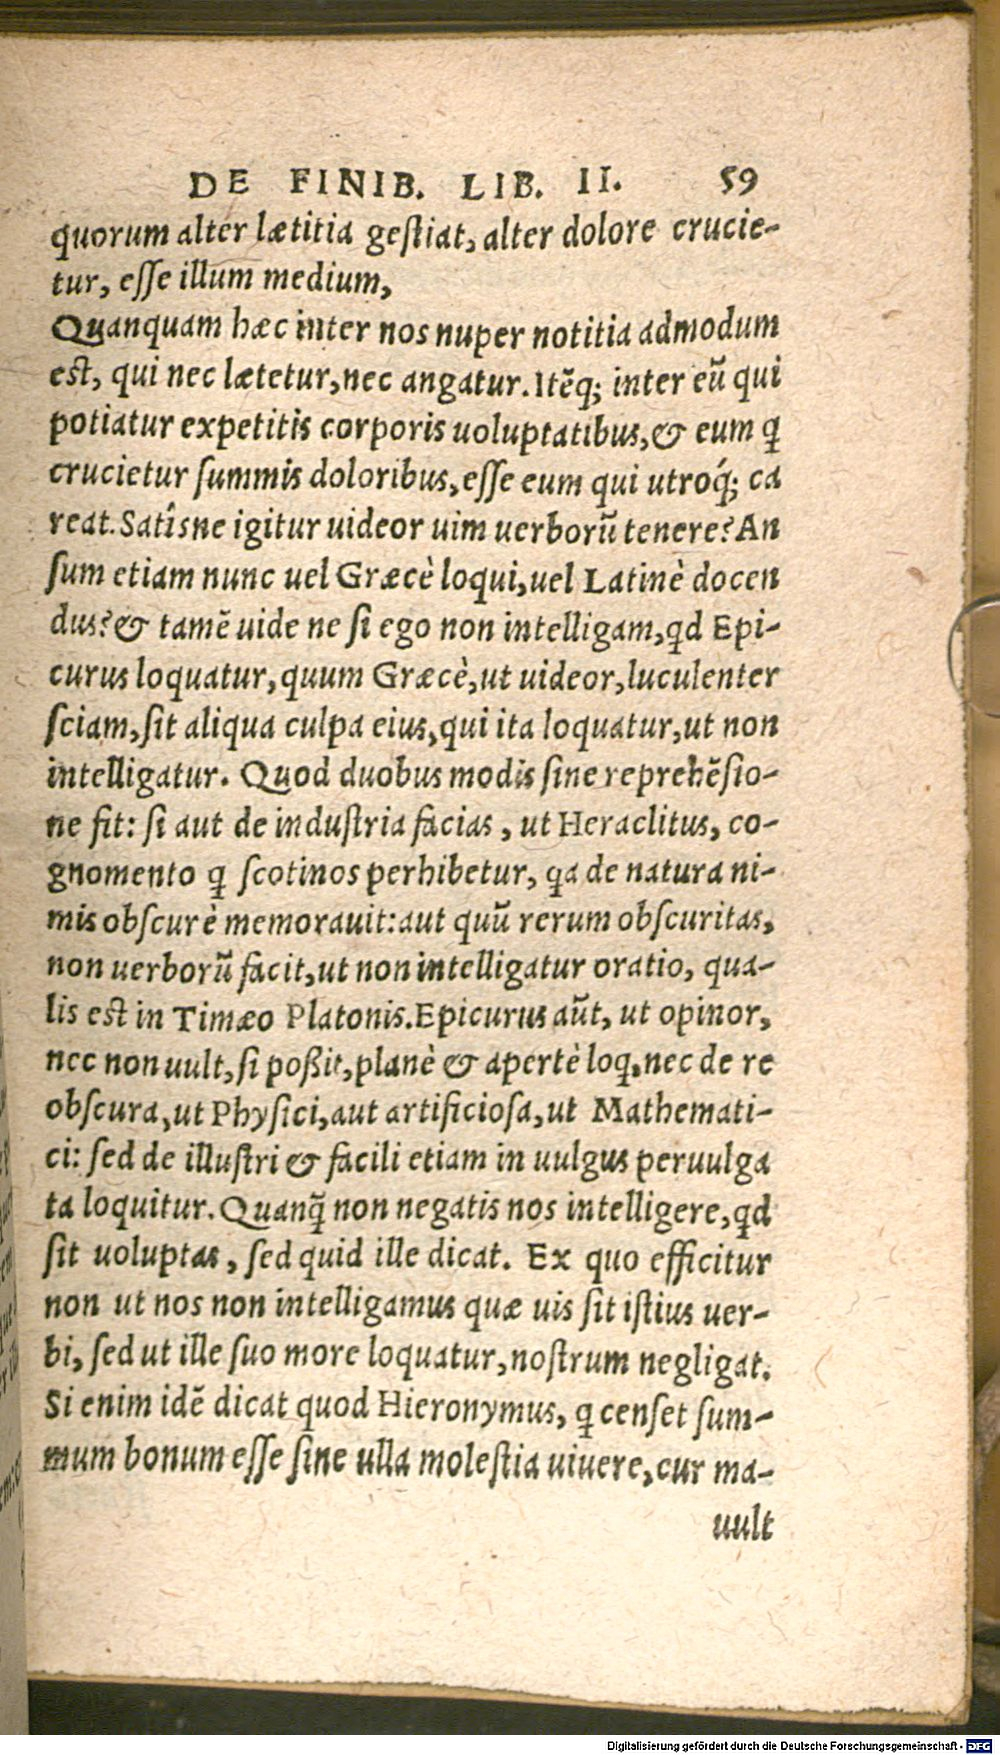 DE FINIB. LIB. II. 59
quorum alter lætitia geſtiat, alter dolore crucie-
tur, eſſe illum medium,
Quanquam hæc inter nos nuper notitia admodum
eſt, qui nec lætetur, nec angatur. Itēq; inter eū qui
potiatur expetitis corporis uoluptatibus, & eum ꝗ
crucietur ſummis doloribus, eſſe eum qui utroq́; ca
reat. Satîsne igitur uideor uim uerborū tenere? An
ſum etiam nunc uel Græcè loqui, uel Latinè docen
dus? & tamē uide ne ſi ego non intelligam, qd Epi-
curus loquatur, quum Græcè, ut uideor, luculenter
ſciam, ſit aliqua culpa eius, qui ita loquatur, ut non
intelligatur. Quod duobus modis ſine reprehēſio-
ne fit: ſi aut de induſtria facias, ut Heraclitus, co-
gnomento ꝗ ſcotinos perhibetur, ꝗa de natura ni-
mis obſcurè memorauit: aut quū rerum obſcuritas,
non uerborū facit, ut non intelligatur oratio, qua-
lis eſt in Timæo Platonis. Epicurus aūt, ut opinor,
nec non uult, ſi poßit, planè & apertè loꝗ, nec de re
obſcura, ut Phyſici, aut artificioſa, ut Mathemati-
ci: ſed de illuſtri & facili etiam in uulgus peruulga
ta loquitur. Quanq̃ non negatis nos intelligere, qd
ſit uoluptas, ſed quid ille dicat. Ex quo efficitur
non ut nos non intelligamus quæ uis ſit iſtius uer-
bi, ſed ut ille ſuo more loquatur, noſtrum negligat.
Si enim idē dicat quod Hieronymus, ꝗ cenſet ſum-
mum bonum eſſe ſine ulla moleſtia uiuere, cur ma-
uult
Digitalisierung gefördert durch die Deutsche Forschungsgemeinschaft - DFG